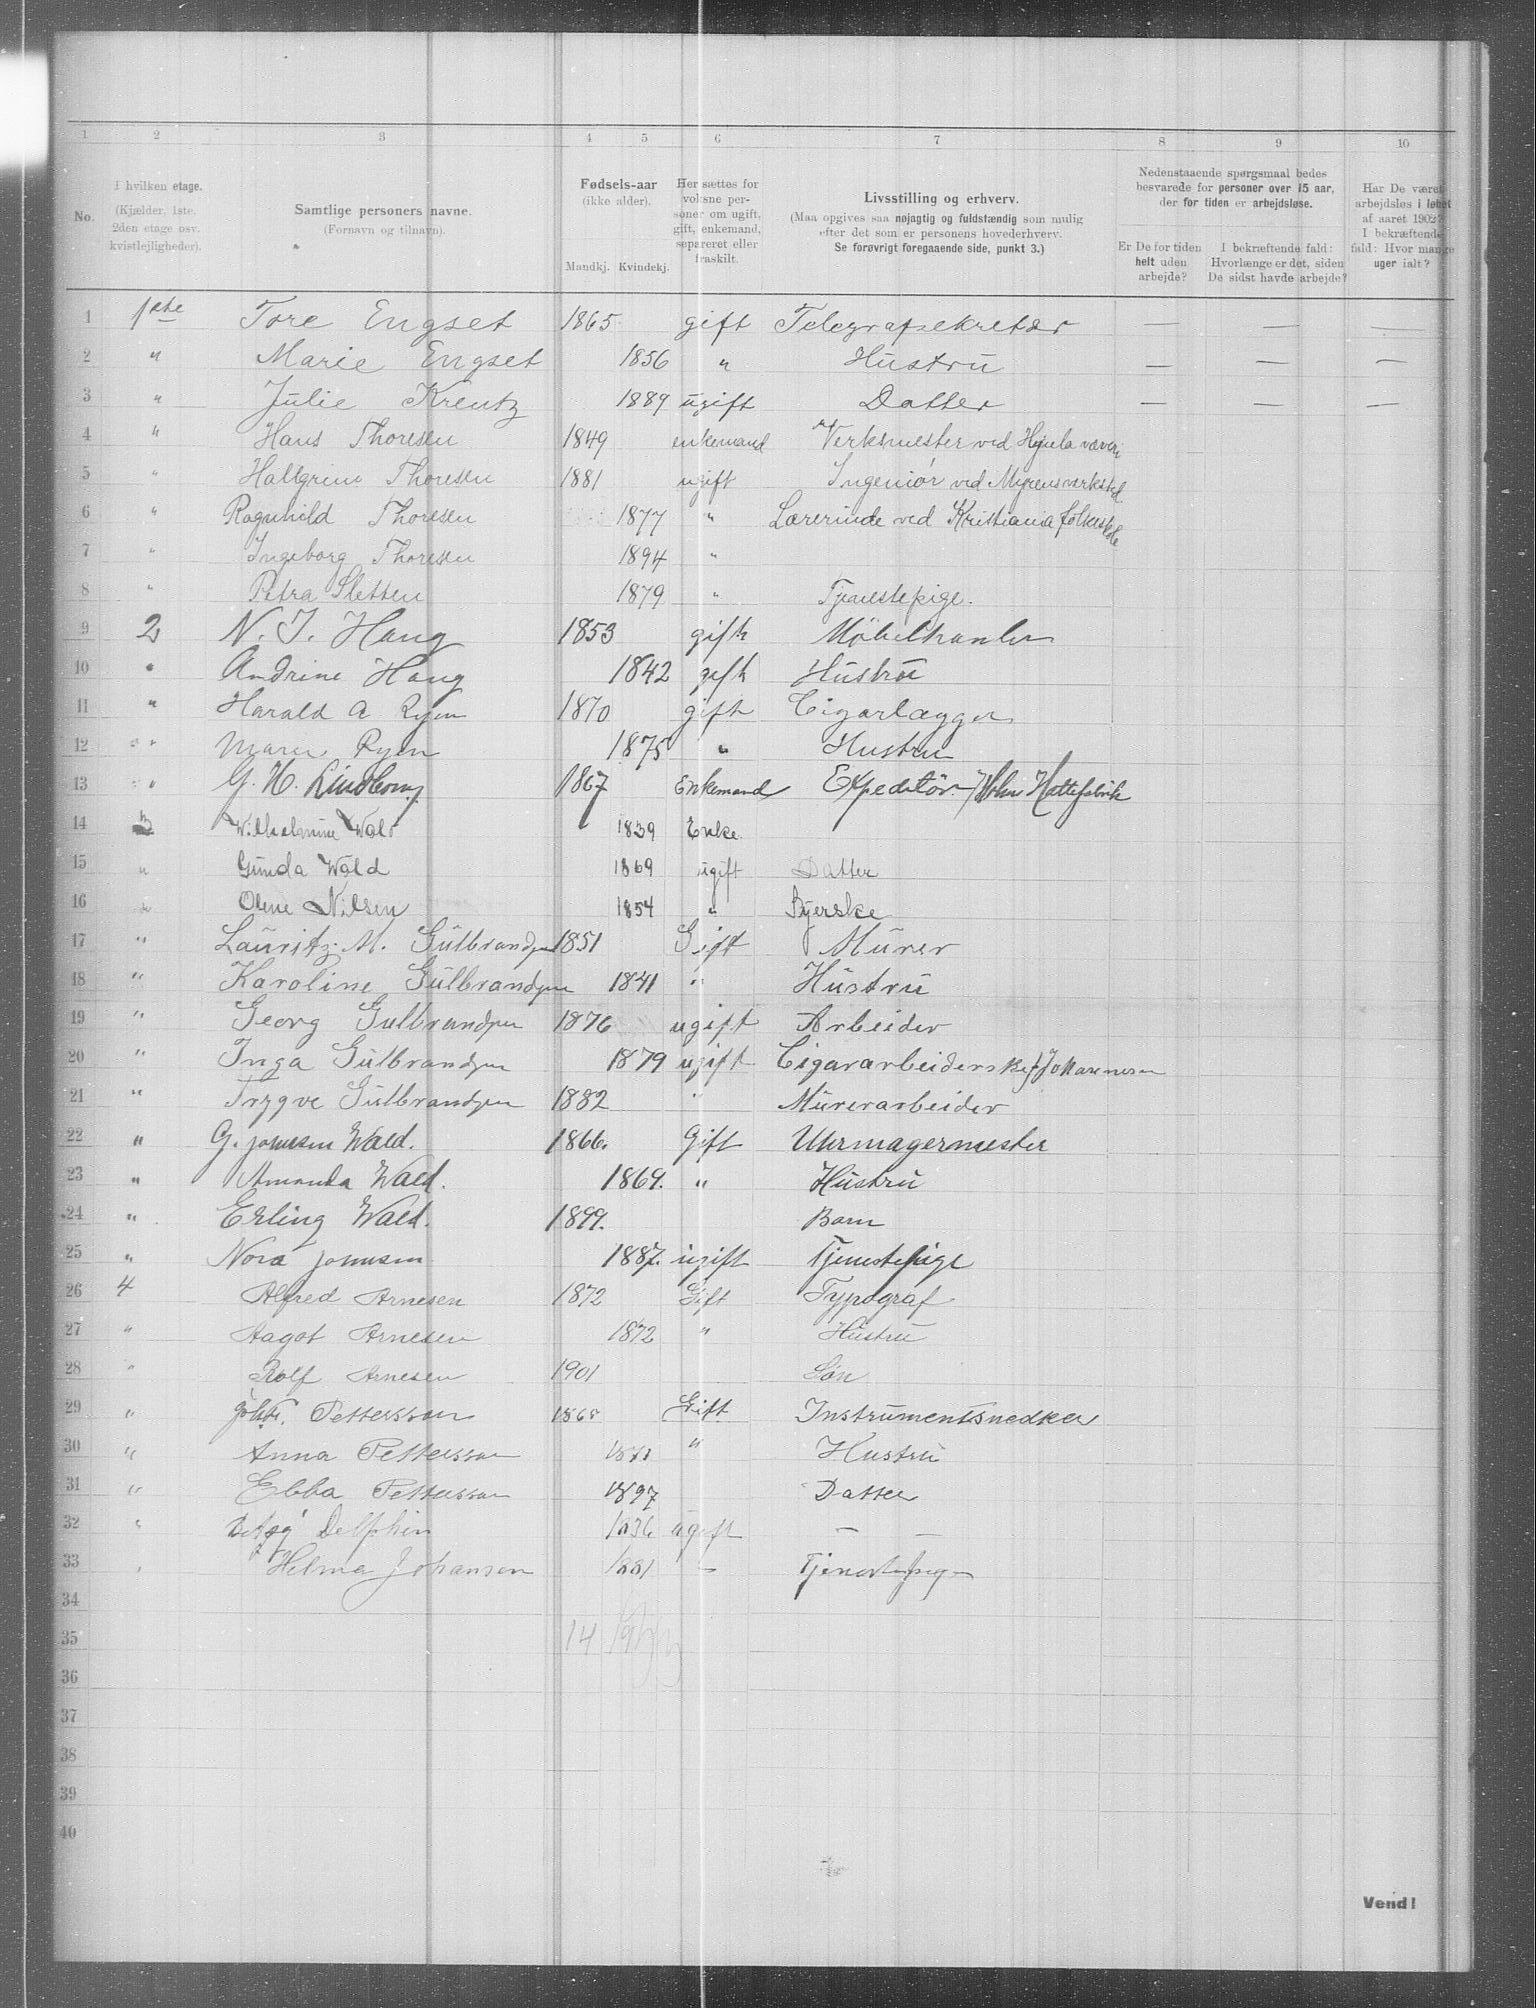 1 2 3 4 5 6 7 8 9 10
No.
I hvilken etage.
(Kjælder, 1ste.
2den etage osv.
kvistlejligheder).
Samtlige personers navne.
(Fornavn og tilnavn).
Fødsels-aar
(ikke alder).
Mandkj. Kvindekj.
Her sættes for
voksne per-
soner om ugift,
gift, enkemand,
separeret eller
fraskilt.
Livsstilling og erhverv.
(Maa opgives saa nøjagtig og fuldstændig som mulig
efter det som er personens hovederhverv.
Se forøvrigt foregaaende side, punkt 3.)
Nedenstaaende spørgsmaal bedes
besvarede for personer over 15 aar,
der for tiden er arbejdsløse.
Er De for tiden
helt uden
arbejde?
I bekræftende fald:
Hvorlænge er det, siden
De sidst havde arbejde?
Har De været
arbejdsløs i løbet
af aaret 1902?
I bekræftende
fald: Hvor mange
uger ialt?
1 1ste Tore Engset 1865 gift Telegrafsekretær — — —
2 " Marie Engset 1856 " Hustru — — —
3 " Julie Kreutz 1889 ugift Datter — — —
4 " Hans Thoresen 1849 enkemand Verksmester ved Hjula væveri
5 " Hallgrim Thoresen 1881 ugift Ingeniør ved Myrens verksted
6 " Ragnhild Thoresen 1877 " Lærerinde ved Kristiania folkeskole
7 " Ingeborg Thoresen 1894 "
8 " Petra Sletten 1879 " Tjenestepige.
9 2 N. J. Haug 1853 gift Møbelhanler
10 " Andrine Haug 1842 gift Hustru
11 " Harald A Ryen 1870 gift Cigarlægger
12 " Maren Ryen 1875 " Hustru
13 " G. H. Lindberg 1867 Enkemand Expeditør Hattefabrik
14 3 Wilhelmine Wald 1839 Enke
15 " Gunda Wald 1869 ugift Datter
16 " Oline Nilsen 1854 " Syerske
17 " Lauritz M. Gulbrandsen 1851 Gift Murer
18 " Karoline Gulbrandsen 1841 " Hustru
19 " Georg Gulbrandsen 1876 ugift Arbeider
20 " Inga Gulbrandsen 1879 ugift Cigararbeiderske Johannesen
21 " Trygve Gulbrandsen 1882 " Murerarbeider
22 " G. Johnsen Wald. 1866. Gift Uhrmagermester
23 " Amanda Wald. 1869. " Hustru
24 " Erling Wald. 1899. Barn
25 " Nora Johnsen 1887. ugift Tjenestepige
26 4 Alfred Arnesen 1872 Gift Typograf
27 " Aagot Arnesen 1872 " Hustru
28 " Rolf Arnesen 1901 Søn
29 " Pettersson Gift Instrumentsnedker
30 " Anna Pettersson " Hustru
31 " Ebba Pettersson 1897 Datter
32 " Delphin 1836 ugift — —
33 Helma Johansen 1881 — Tjenestepige
34
35 14
36
37
38
39
40
Vend!